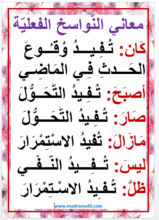 معاني النواسخ الفعلية
كَان: تُـفـيـدُ وُقُـوعَ
الحَدثِ فِي المَاضِي
أصبَحَ: تُفيدُ التَّحَوُّل
صَارَ: تُفيدُ التَّحَوُّل
مَازَالَ: تُفيدُ الاستمْرَار
ليسَ: تُـفـيـدُ النَّـفْـي
ظَلَّ: تُفيدُ الاستِمْرَارَ
www.madrassatii.com